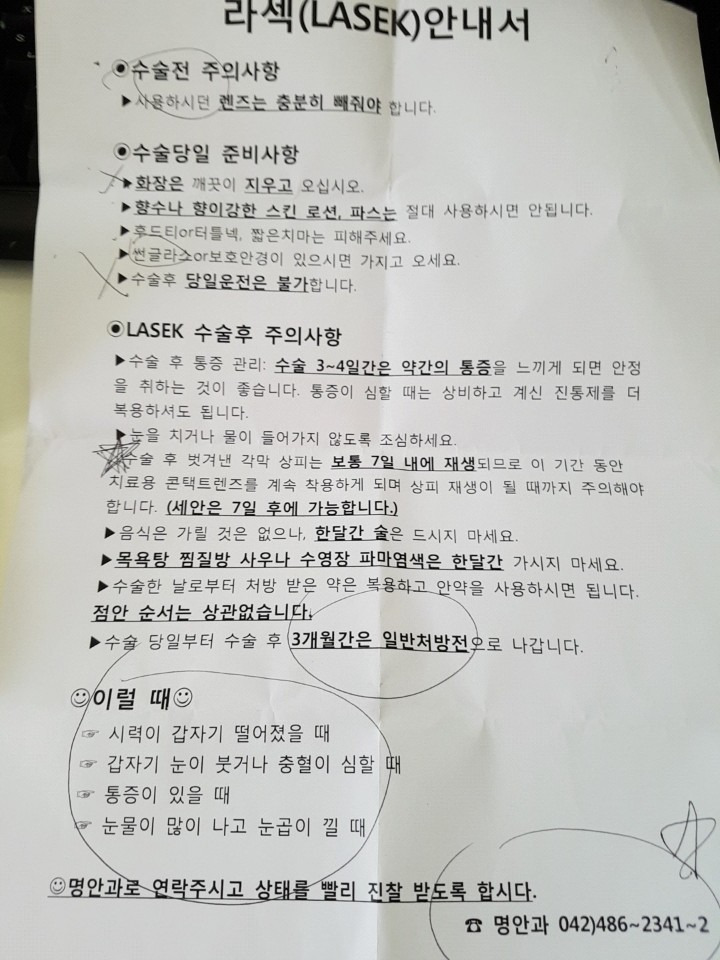 라섹(LASEK)안내서
◉수술전 주의사항
▶사용하시던 렌즈는 충분히 빼줘야 합니다.
◉수술당일 준비사항
▶화장은 깨끗이 지우고 오십시오.
▶향수나 향이강한 스킨 로션, 파스는 절대 사용하시면 안됩니다.
▶후드티or터틀넥, 짧은치마는 피해주세요.
▶썬글라스or보호안경이 있으시면 가지고 오세요.
▶수술후 당일운전은 불가합니다.
◉LASEK 수술후 주의사항
▶수술 후 통증 관리: 수술 3~4일간은 약간의 통증을 느끼게 되면 안정
을 취하는 것이 좋습니다. 통증이 심할 때는 상비하고 계신 진통제를 더
복용하셔도 됩니다.
▶눈을 치거나 물이 들어가지 않도록 조심하세요.
수술 후 벗겨낸 각막 상피는 보통 7일 내에 재생되므로 이 기간 동안
치료용 콘택트렌즈를 계속 착용하게 되며 상피 재생이 될 때까지 주의해야
합니다. (세안은 7일 후에 가능합니다.)
▶음식은 가릴 것은 없으나, 한달간 술은 드시지 마세요.
▶목욕탕 찜질방 사우나 수영장 파마염색은 한달간 가시지 마세요.
▶수술한 날로부터 처방 받은 약은 복용하고 안약을 사용하시면 됩니다.
점안 순서는 상관없습니다.
▶수술 당일부터 수술 후 3개월간은 일반처방전으로 나갑니다.
☺이럴 때☺
☞ 시력이 갑자기 떨어졌을 때
☞ 갑자기 눈이 붓거나 충혈이 심할 때
☞ 통증이 있을 때
☞ 눈물이 많이 나고 눈곱이 낄 때
☺명안과로 연락주시고 상태를 빨리 진찰 받도록 합시다.
☎ 명안과 042)486~2341~2